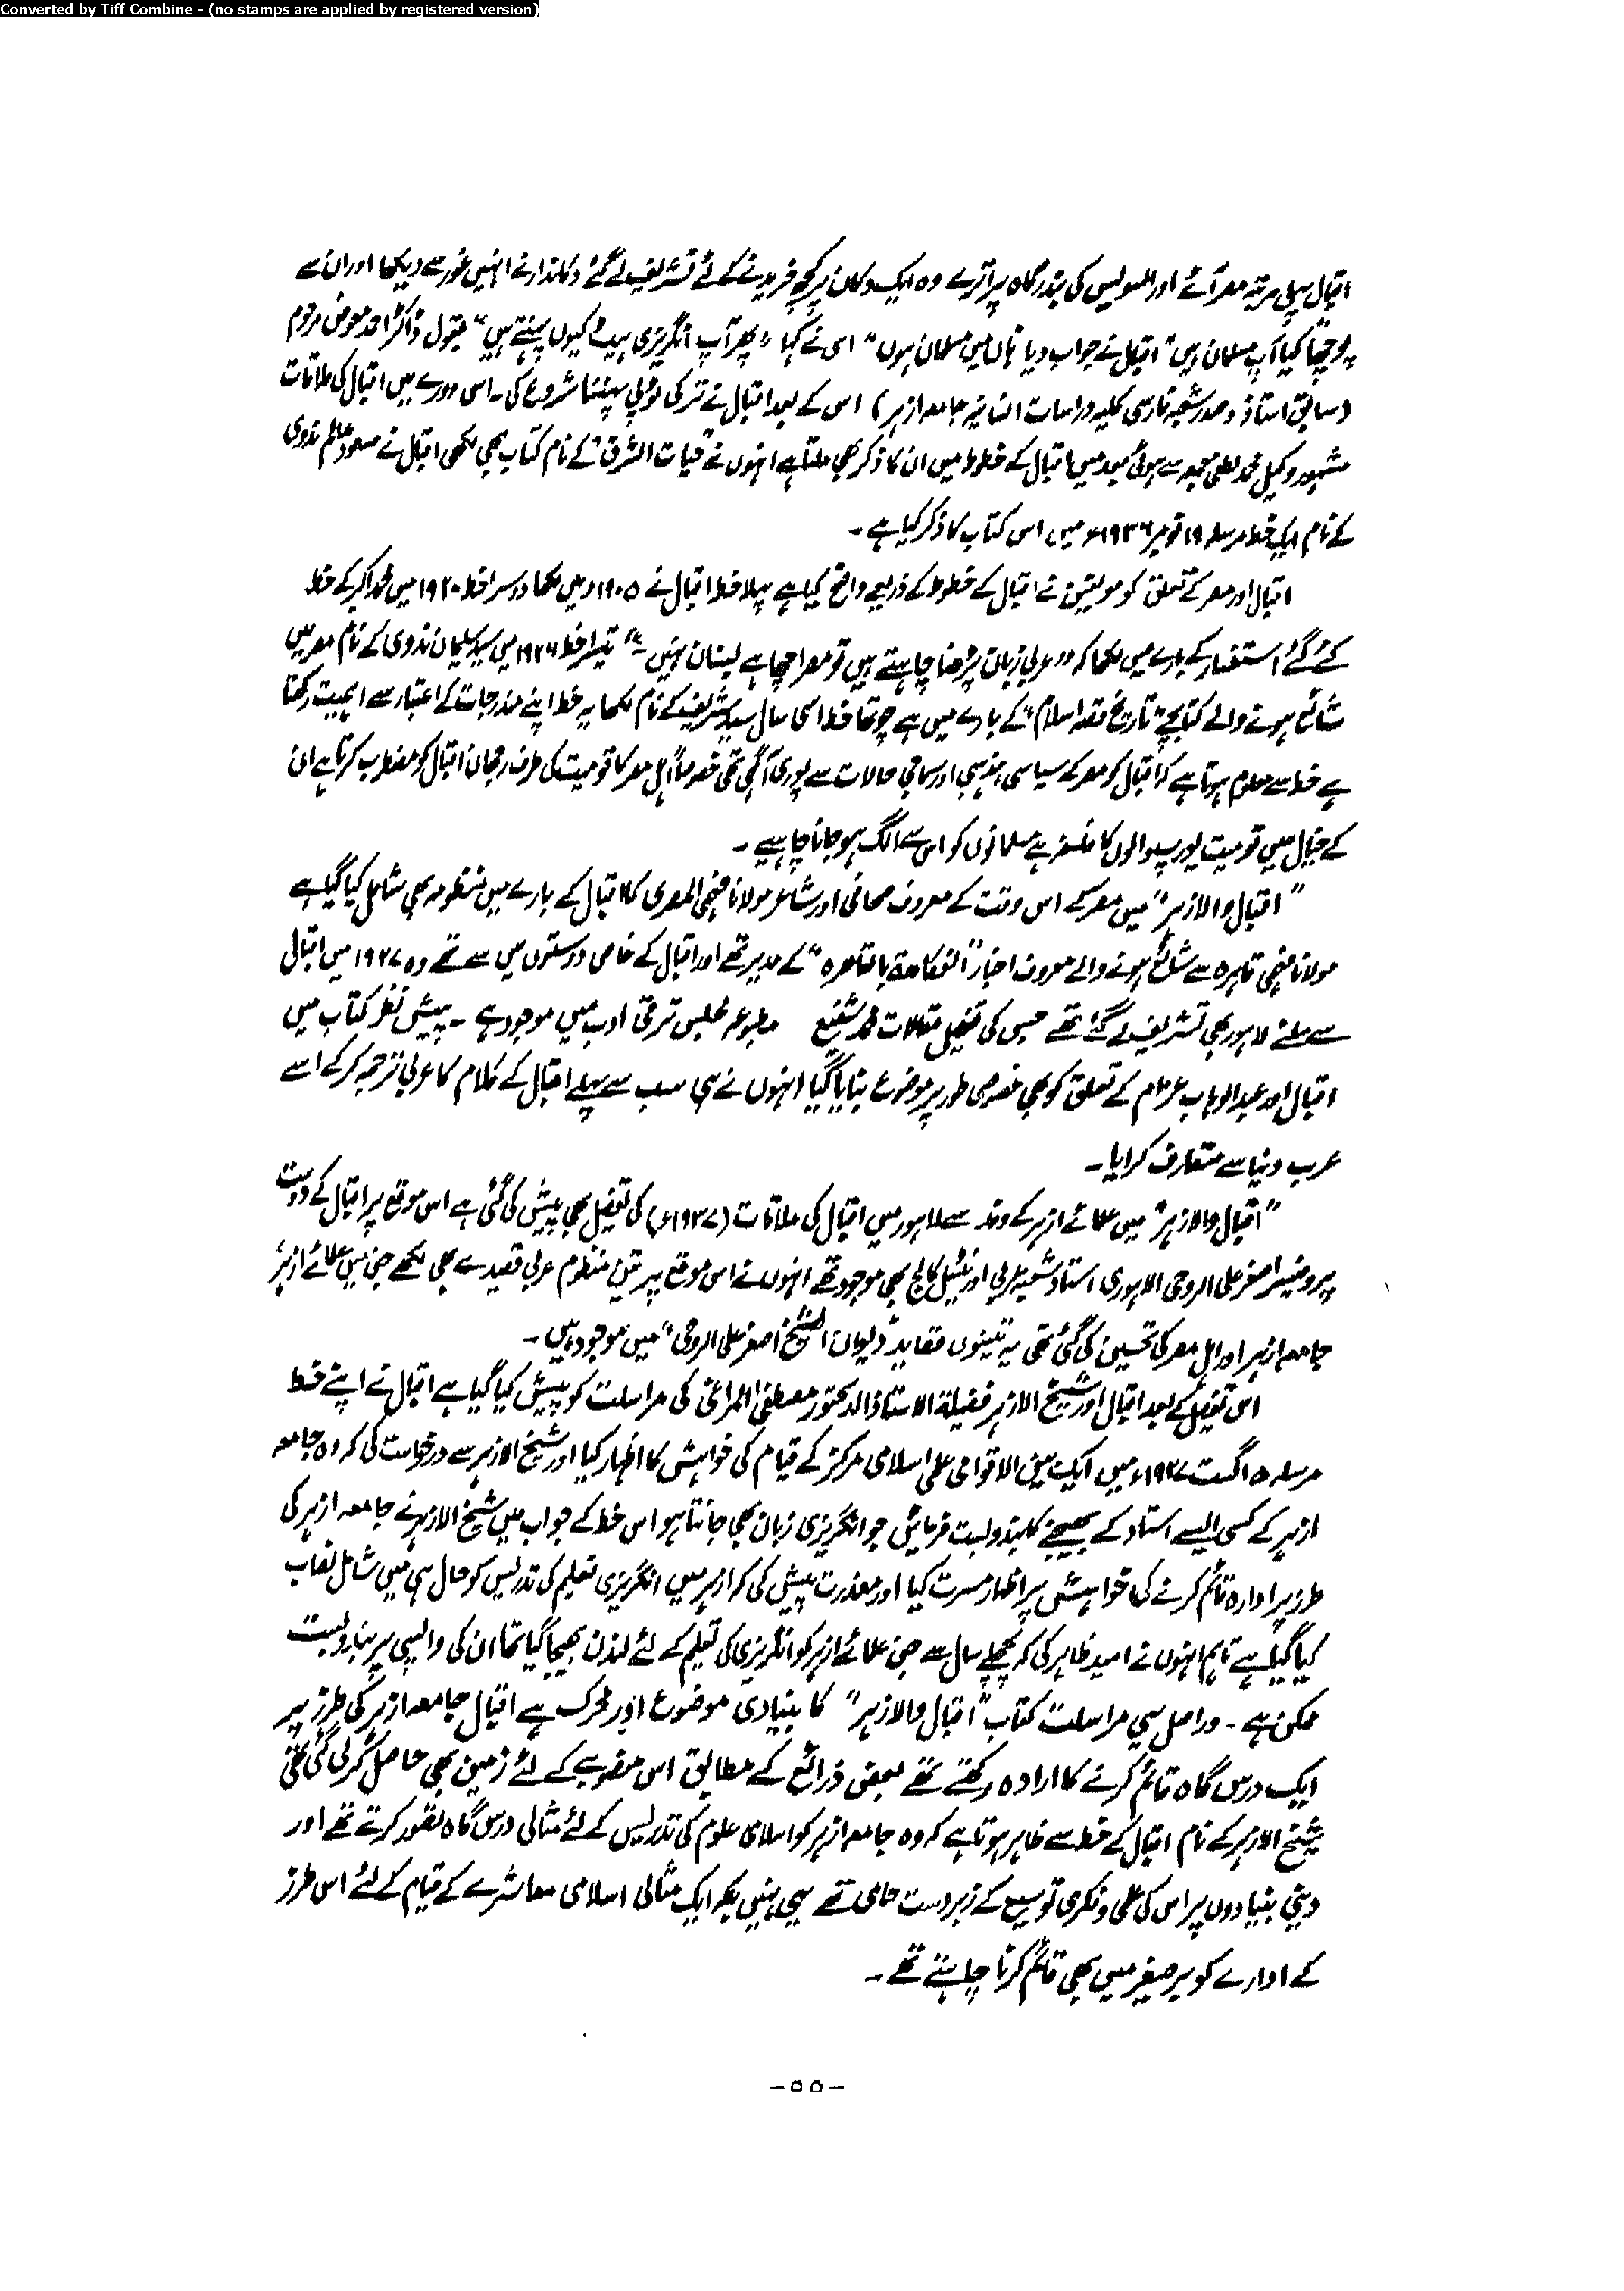 Converted by Tiff Combine - (no stamps are applied by registered version)
اقبال پہلی مرتبہ مصر آئے اور السویس کی بندرگاہ پر اترے وہ ایک دکان پر کچھ خریدنے کے لئے تشریف لے گئے دکاندار نے انہیں غور سے دیکھا اور ان سے
پوچھا کیا آپ مسلمان ہیں" اقبال نے جواب دیا ہاں میں مسلمان ہوں" اس نے کہا "پھر آپ انگریزی ہیٹ کیوں پہنتے ہیں" بقول ڈاکٹر احمد معوض مرحوم
(سابق استاذ وصدر شعبہ فارسی کلیہ دراسات انسانیہ جامعہ ازہر) اس کے بعد اقبال نے ترکی ٹوپی پہننا شروع کی۔ اسی دورے میں اقبال کی ملاقات
مشہور وکیل محمد لطفی جمعہ سے ہوئی بعد میں اقبال کے خطوط میں ان کا ذکر بھی ملتا ہے انہوں نے "حیات الشرق" کے نام کتاب بھی لکھی اقبال نے مسعود عالم ندوی
کے نام ایک خط مرسلہ ۱۹ نومبر ۱۹۳۶ء میں اس کتاب کا ذکر کیا ہے۔
اقبال اور مصر کے تعلق کو مولفین نے اقبال کے خطوط کے ذریعے واضح کیا ہے پہلا خط اقبال نے ۱۹۰۵ء میں لکھا دوسرا خط ۱۹۲۰ میں محمد اکبر کے خط
کئے گئے استفسار کے بارے میں لکھا کہ "عربی زبان پڑھنا چاہتے ہیں تو مصر اچھا ہے لبنان نہیں" تیسرا خط ۱۹۲۶ میں سید سلیمان ندوی کے نام مصر میں
شائع ہونے والے کتابچے "تاریخ فقہ اسلام" کے بارے میں ہے چوتھا خط اسی سال سید شریف کے نام لکھا یہ خط اپنے مندرجات کے اعتبار سے اہمیت رکھتا
ہے خط سے معلوم ہوتا ہے کہ اقبال کو مصر کے سیاسی، مذہبی اور سماجی حالات سے پوری آگہی تھی خصوصاً اہل مصر کا قومیت کی طرف رجحان اقبال کو مضطرب کرتا ہے ان
کے خیال میں قومیت یورپ والوں کا فلسفہ ہے مسلمانوں کو اس سے الگ ہو جانا چاہیے۔
"اقبال والازہر" میں مصر کے اس وقت کے معروف صحافی اور شاعر مولانا فتحی المصری کا اقبال کے بارے میں منظومہ بھی شامل کیا گیا ہے
مولانا فتحی قاہرہ سے شائع ہونے والے معروف اخبار "الفکاھة بالقاھرہ" کے مدیر تھے اور اقبال کے خاص دوستوں میں سے تھے وہ ۱۹۳۷ میں اقبال
سے ملنے لاہور بھی تشریف لے گئے تھے جس کی تفصیل مقالات محمد شفیع مطبوعہ مجلس ترقی ادب میں موجود ہے۔ پیش نظر کتاب میں
اقبال اور عبدالوہاب عزام کے تعلق کو بھی خصوصی طور پر موضوع بنایا گیا انہوں نے ہی سب سے پہلے اقبال کے کلام کا عربی ترجمہ کر کے اسے
عرب دنیا سے متعارف کرایا۔
"اقبال والازہر" میں علمائے ازہر کے وفد سے لاہور میں اقبال کی ملاقات (۱۹۳۷ء) کی تفصیل بھی پیش کی گئی ہے اس موقع پر اقبال کے دوست
پروفیسر اصغر علی الروحی الاہوری استاد شعبہ عربی اورنیٹل کالج بھی موجود تھے انہوں نے اس موقع پر تین منظوم عربی قصیدے بھی لکھے جن میں علمائے ازہر،
جامعہ ازہر اور اہل مصر کی تحسین کی گئی تھی یہ تینوں قصاید "دیوان الشیخ اصغر علی الروحی" میں موجود ہیں۔
اس تفصیل کے بعد اقبال اور شیخ الازہر فضیلة الاستاذ الدکتور مصطفیٰ المراغی کی مراسلت کو پیش کیا گیا ہے اقبال نے اپنے خط
مرسلہ ۵ اگست ۱۹۳۷ء میں ایک بین الاقوامی علمی اسلامی مرکز کے قیام کی خواہش کا اظہار کیا اور شیخ الازہر سے درخواست کی کہ وہ جامعہ
ازہر کے کسی ایسے استاد کے بھیجنے کا بندوبست فرمائیں جو انگریزی زبان بھی جانتا ہو اس خط کے جواب میں شیخ الازہر نے جامعہ ازہر کی
طرز پر ادارہ قائم کرنے کی خواہش پر اظہار مسرت کیا اور معذرت پیش کی کہ ازہر میں انگریزی تعلیم کی تدریس کو حال ہی میں شامل نصاب
کیا گیا ہے تاہم انہوں نے امید ظاہر کی کہ پچھلے سال سے جن علمائے ازہر کو انگریزی کی تعلیم کے لئے لندن بھیجا گیا تھا ان کی واپسی پر بندوبست
ممکن ہے۔ دراصل یہی مراسلت کتاب "اقبال والازہر" کا بنیادی موضوع اور محرک ہے اقبال جامعہ ازہر کی طرز پر
ایک درس گاہ قائم کرنے کا ارادہ رکھتے تھے بعض ذرائع کے مطابق اس منصوبے کے لئے زمین بھی حاصل کر لی گئی تھی
شیخ الازہر کے نام اقبال کے خط سے ظاہر ہوتا ہے کہ وہ جامعہ ازہر کو اسلامی علوم کی تدریس کے لئے مثالی درس گاہ تصور کرتے تھے اور
دینی بنیادوں پر اس کی علمی و فکری توسیع کے زبردست حامی تھے یہی نہیں بلکہ ایک مثالی اسلامی معاشرے کے قیام کے لئے اس طرز
کے ادارے کو برصغیر میں بھی قائم کرنا چاہتے تھے۔
-۵۵-